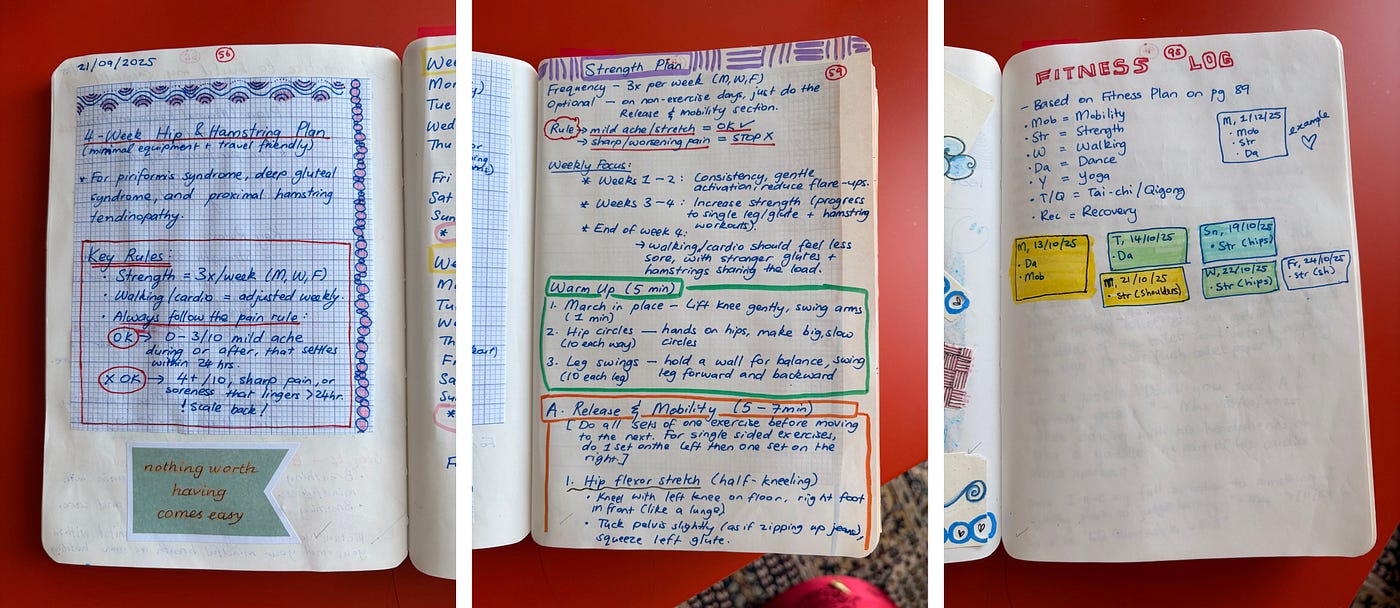 21/09/2025
56
4-Week Hip & Hamstring Plan
(minimal equipment + travel friendly)
* For piriformis syndrome, deep gluteal
syndrome, and proximal hamstring
tendinopathy.
Key Rules:
• Strength = 3x/week (M, W, F)
• Walking/cardio = adjusted weekly.
• Always follow the pain rule:
OK → 0-3/10 mild ache
during or after, that settles
within 24 hrs.
X OK → 4+/10, sharp pain, or
soreness that lingers >24hr.
! Scale back!
nothing worth
having
comes easy
Tue
Wed
Fri
Sat
59
Strength Plan
Frequency - 3x per week (M, W, F)
Optional - on non-exercise days, just do the
Release & Mobility section.
Rule → mild ache/stretch = OK ✓
→ sharp/worsening pain = STOP X
Weekly Focus:
* Weeks 1-2: Consistency, gentle
activation, reduce flare-ups.
* Weeks 3-4: Increase strength (progress
to single leg/glute + hamstring
workouts).
* End of week 4:
→ walking/cardio should feel less
sore, with stronger glutes +
hamstrings sharing the load.
Warm Up (5 min)
1. March in place - Lift knee gently, swing arms
(1 min)
2. Hip circles — hands on hips, make big, slow
(10 each way) circles
3. Leg swings - hold a wall for balance, swing
(10 each leg) leg forward and backward
A. Release & Mobility (5-7min)
[Do all sets of one exercise before moving
to the next. For single sided exercises,
do 1 set on the left then one set on the
right.]
1. Hip flexor stretch (half-kneeling)
• Kneel with left knee on floor, right foot
in front (like a lunge)
• Tuck pelvis slightly (as if zipping up jeans),
squeeze left glute.
98
FITNESS LOG
- Based on Fitness Plan on pg 89
• Mob = Mobility
• Str = Strength
• W = Walking
• Da = Dance
• Y = Yoga
• T/Q = Tai-chi/Qigong
• Rec = Recovery
M, 1/12/25
• Mob
• Str
• Da
example
M, 13/10/25
• Da
• Mob
T, 14/10/25
• Da
M, 21/10/25
• Str (shoulders)
Sn, 19/10/25
• Str (hips)
W, 22/10/25
• Str (hips)
Fr, 24/10/25
• Str (sh)